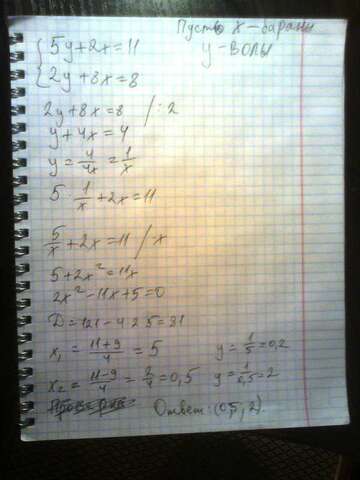 Пусть x - бараны
5y+2x=11
y - волы
2y+8x=8
2y+8x=8 / :2
y+4x=4
y = 4/4x = 1/x
5 · 1/x + 2x = 11
5/x + 2x = 11 / · x
5+2x² = 11x
2x² - 11x + 5 = 0
D = 121 - 4·2·5 = 81
x₁ = (11+9)/4 = 5 y = 1/5 = 0,2
x₂ = (11-9)/4 = 2/4 = 0,5 y = 1/0,5 = 2
Ответ: (0,5; 2).